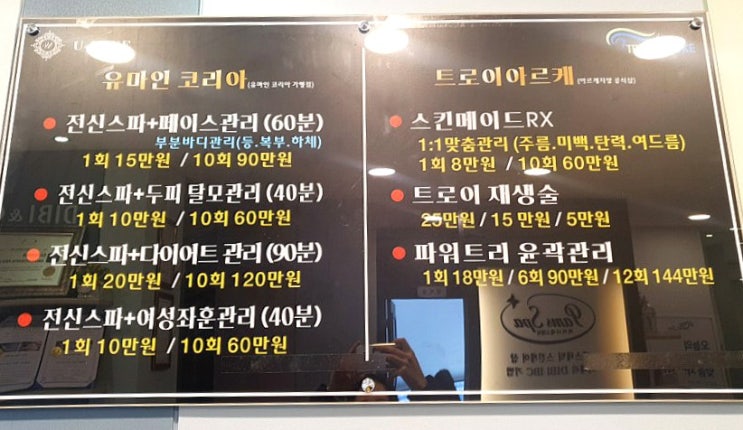 유마인 코리아(유마인 코리아 가맹점)
전신스파+페이스관리 (60분)
부분바디관리(등.복부.하체)
1회 15만원 / 10회 90만원
전신스파+두피 탈모관리 (40분)
1회 10만원 / 10회 60만원
전신스파+다이어트 관리 (90분)
1회 20만원 / 10회 120만원
전신스파+여성좌훈관리 (40분)
1회 10만원 / 10회 60만원
트로이아르케
스킨메이드RX
1:1맞춤관리 (주름.미백.탄력.여드름)
1회 8만원 / 10회 60만원
트로이 재생술
25만원 / 15만원 / 5만원
파워트리 윤곽관리
1회 18만원 / 6회 90만원 / 12회 144만원
Pam's Spa